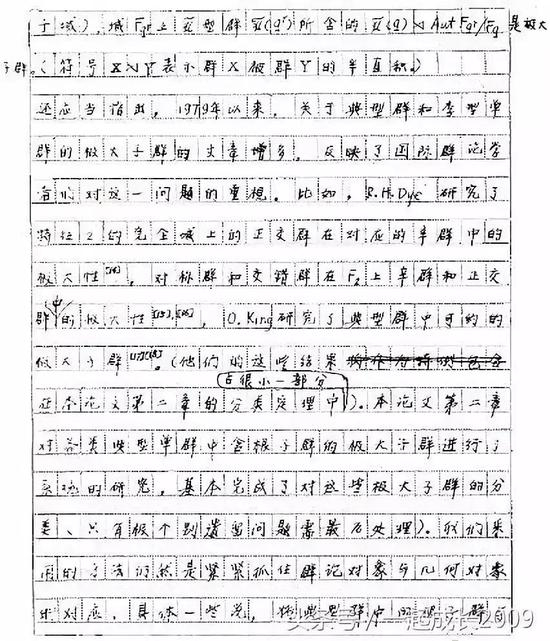 子域),域Fqr上X型群X(qr)所含的X(q)⋊AutFqr/Fq是极大
子群。(符号X⋊Y表示群X被群Y的半直积。)
还应当指出,1979年以来,关于典型群和李型单
群的极大子群的文章增多,反映了国际群论学
者们对这一问题的重视。比如,R.H.Dye研究了
特征2的完全域上的正交群在对应的辛群中的
极大性[14],对称群和交错群在F2上辛群和正交
群中的极大性[15],[16],O.King研究了典型群中可约的
极大子群[17][18]。(他们的这些结果
占很小一部分
在本论文第二章的分类定理中)。本论文第二章
对各类典型单群中含根子群的极大子群进行了
系统的研究,基本完成了对这些极大子群的分
类、只有极个别遗留问题需最后处理)。我们采
用的方法仍然是紧紧抓住群论对象与几何对象
的对应,具体一些说,将典型群中的根子群
头条号/一起成长2009